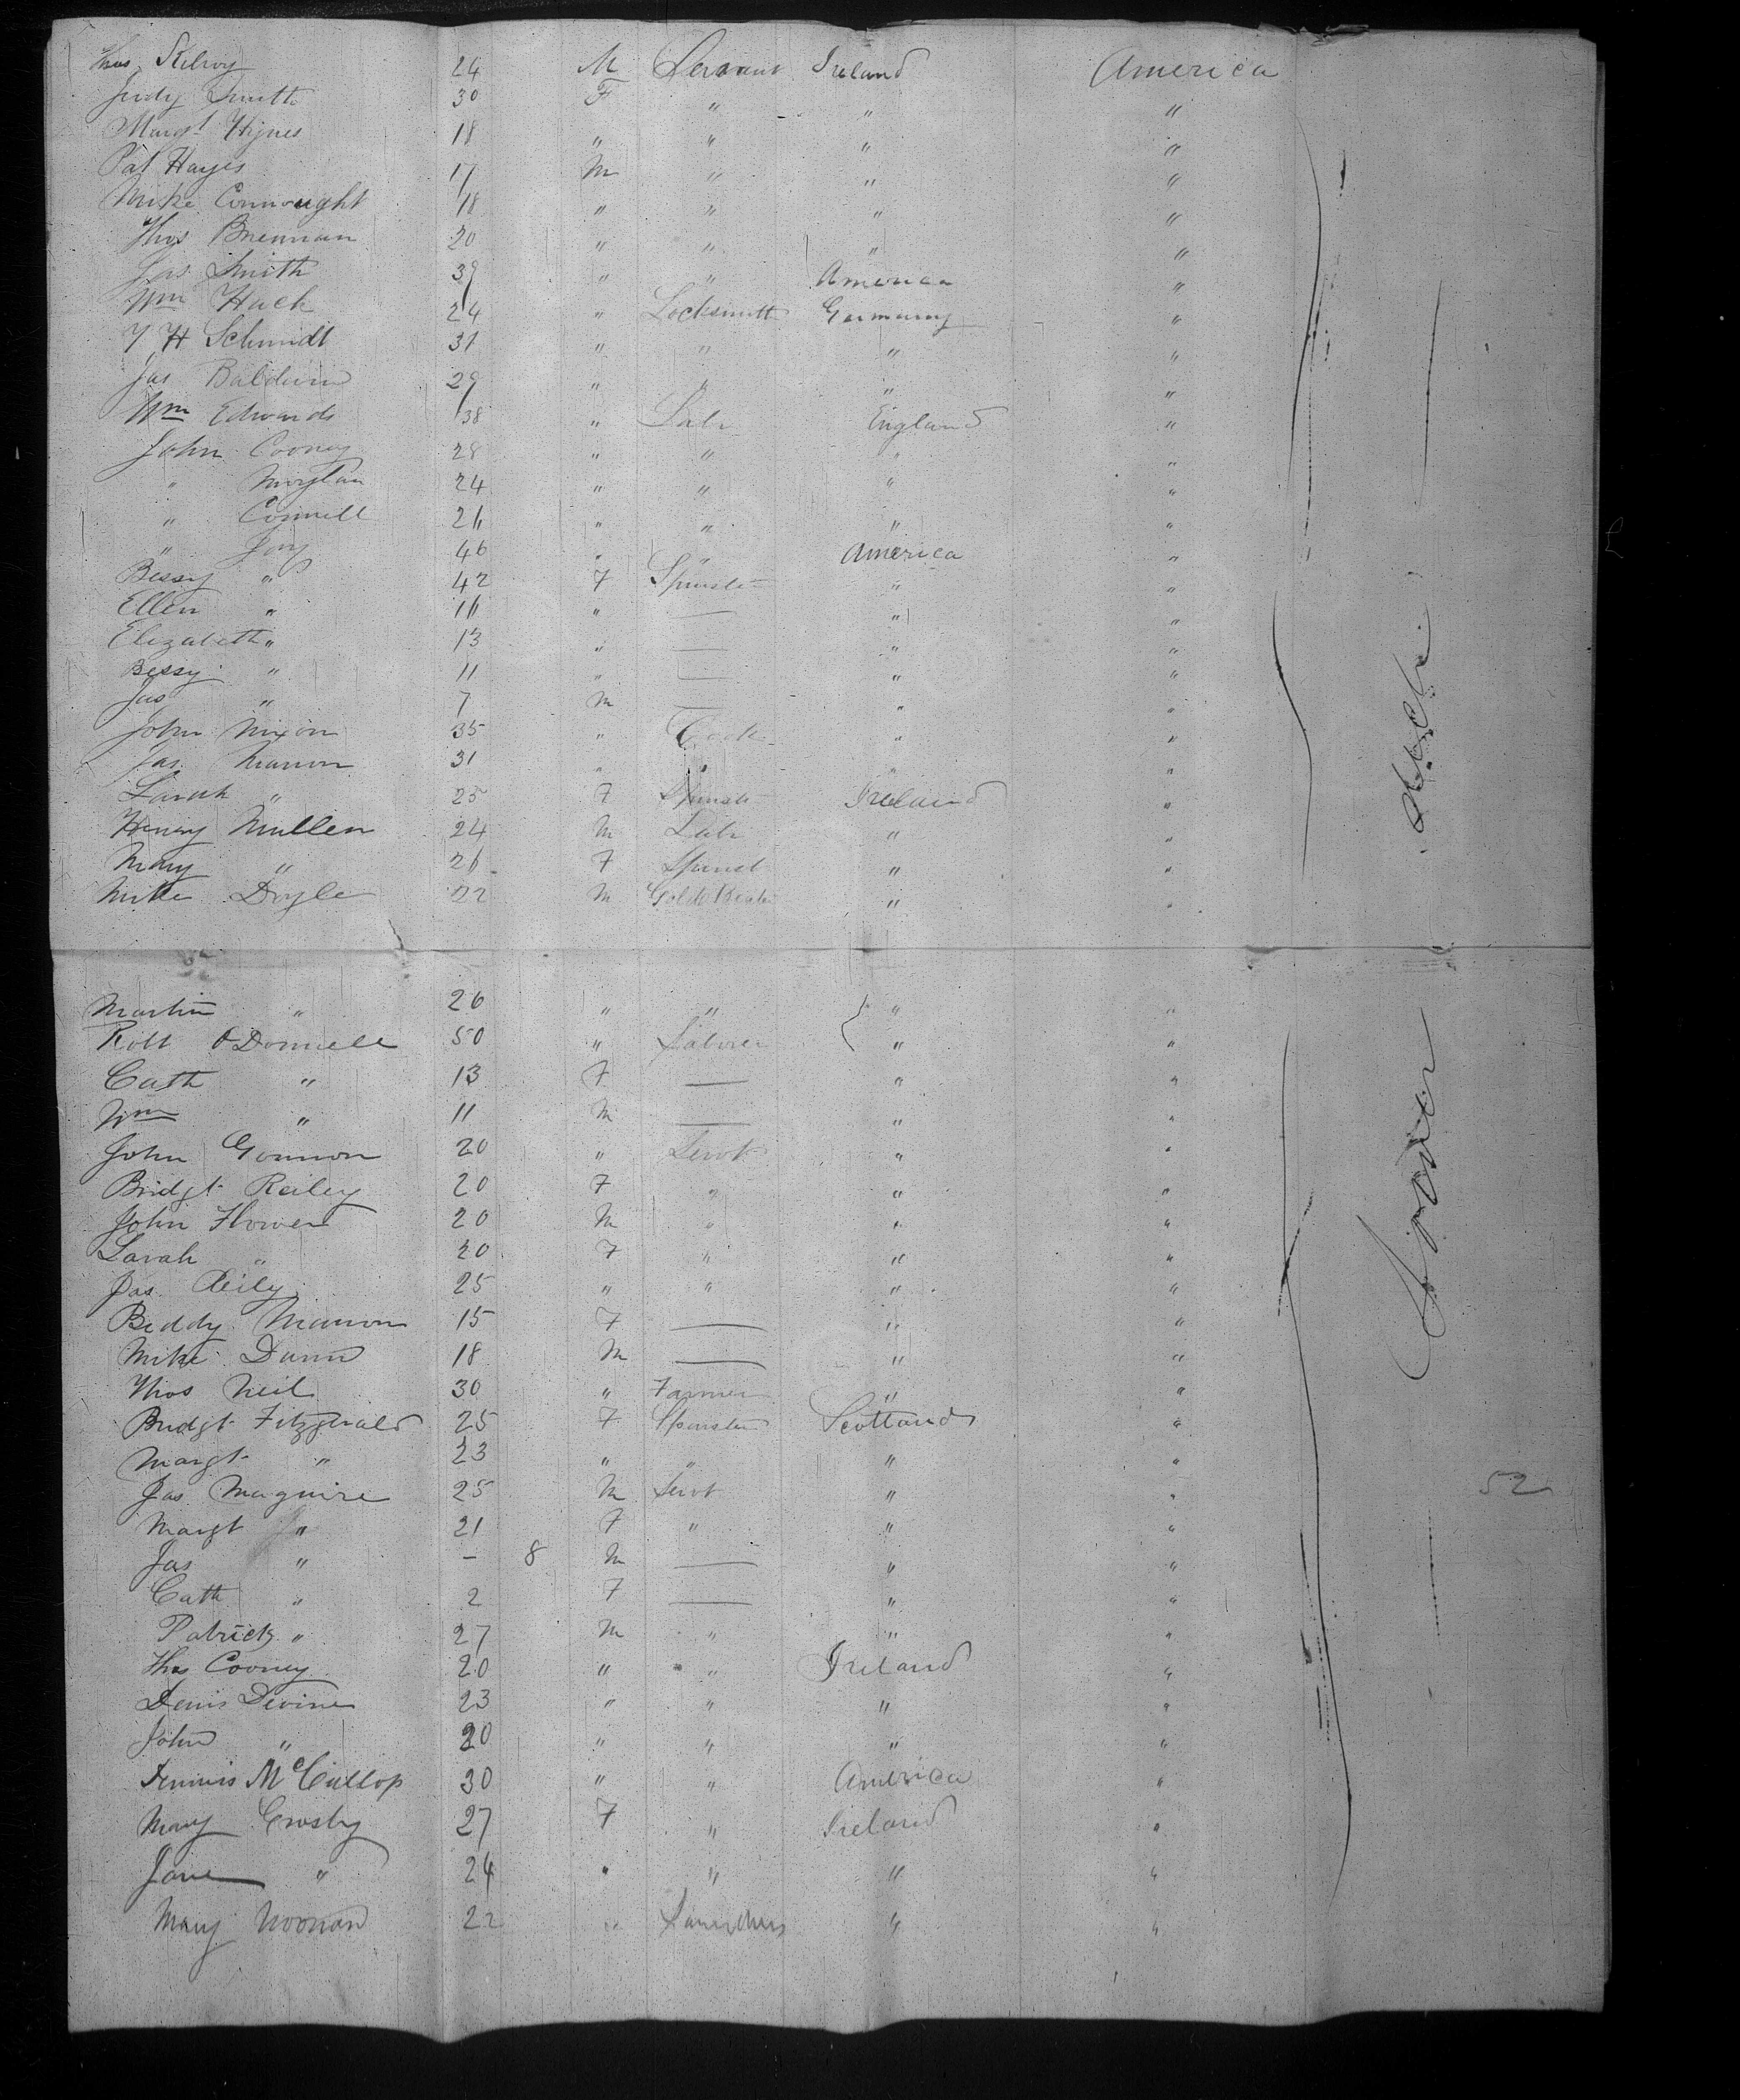 Thos Kilroy 24 M Servant Ireland America
Judy Smith 30 F " " "
Margt Hynes 18 " " " "
Pat Hayes 17 M " " "
Mike Connought 18 " " " "
Thos Brennan 20 " " " "
Jas Smith 39 " " America "
Wm Huck 24 " Locksmith Germany "
J H Schmidt 31 " " " "
Jas Baldwin 29 " " " "
Wm Edwards 38 " Labr England "
John Cooney 28 " " " "
" 24 " " " "
" Connell 26 " " " "
" Joy 46 " " America "
Bessy " 42 F Spinster " "
Ellen " 16 " — " "
Elizabeth " 13 " — " "
Bessy " 11 " — " "
Jas " 7 M — " "
John Nixon 35 " Cook " "
Jas Mannon 31 " " " "
Sarah " 25 F Spinstr Ireland "
Henry Mullen 24 M Labr " "
Mary " 26 F Spinst " "
Mike Doyle 22 M Gold Beater " "
Martin " 26 " " " "
Robt O'Donnell 50 " Laborer " "
Cath " 13 F — " "
Wm " 11 M — " "
John Gonnon 20 " Servt " "
Bridgt Reiley 20 F " " "
John Flower 20 M " " "
Sarah " 20 F " " "
Jas Reily 25 " " " "
Biddy Mannon 15 F — " "
Mike Dunn 18 M — " "
Thos Neil 30 " Farmer " "
Bridgt Fitzgerald 25 F Spinster Scotland "
Margt " 23 " " " "
Jas Maguire 25 M Servt " "
Margt " 21 F " " "
Jas " - 8 M — " "
Cath " 2 F — " "
Patrick " 27 M " " "
Thos Cooney 20 " " Ireland "
Denis Devine 23 " " " "
John " 20 " " " "
Dennis McCullop 30 " " America "
Mary Crosby 27 F " Ireland "
Jane " 24 " " " "
Mary Noonan 22 " " "
52